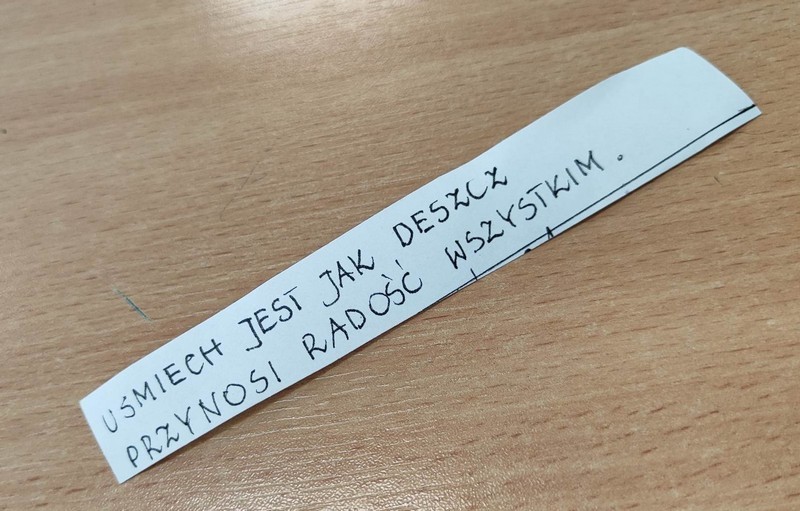 USMIECH JEST JAK DESZCZ
PRZYNOSI RADOŚĆ WSZYSTKIM.